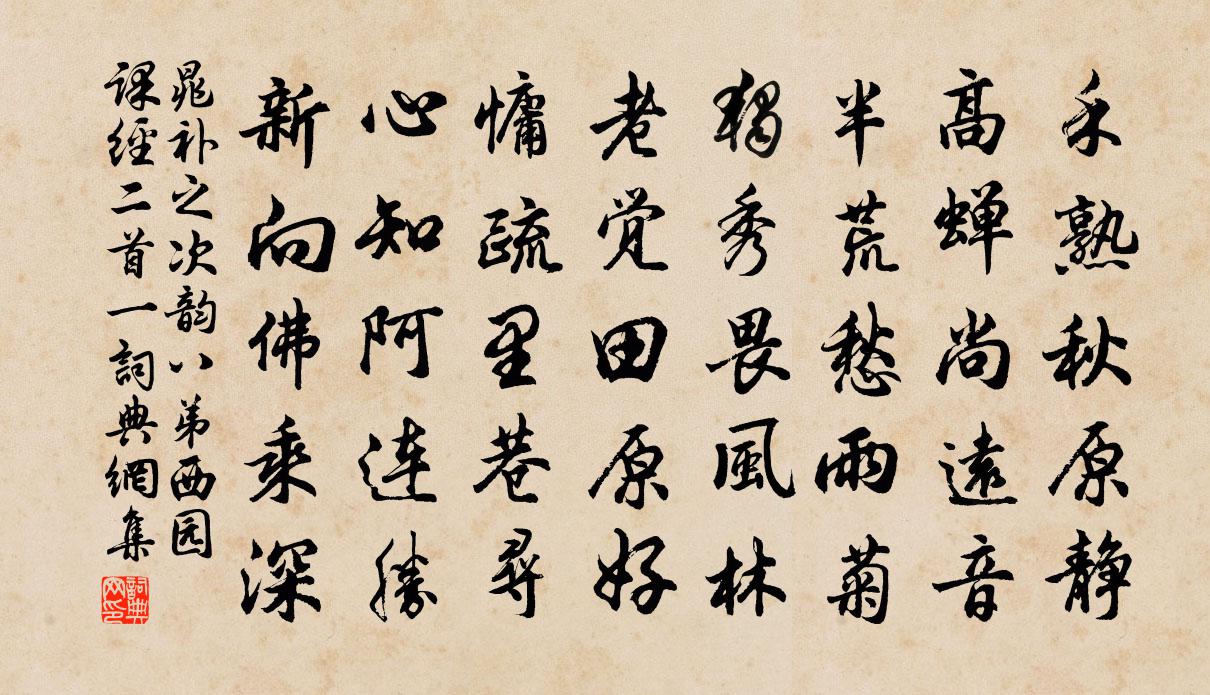 禾熟秋原静
高蝉尚远音
半荒愁雨菊
独秀畏風林
老觉田原好
慵疏里巷尋
心知阿连勝
新向佛乘深
晁补之次韵八弟西园
課經二首一詞典網集
詞典網印